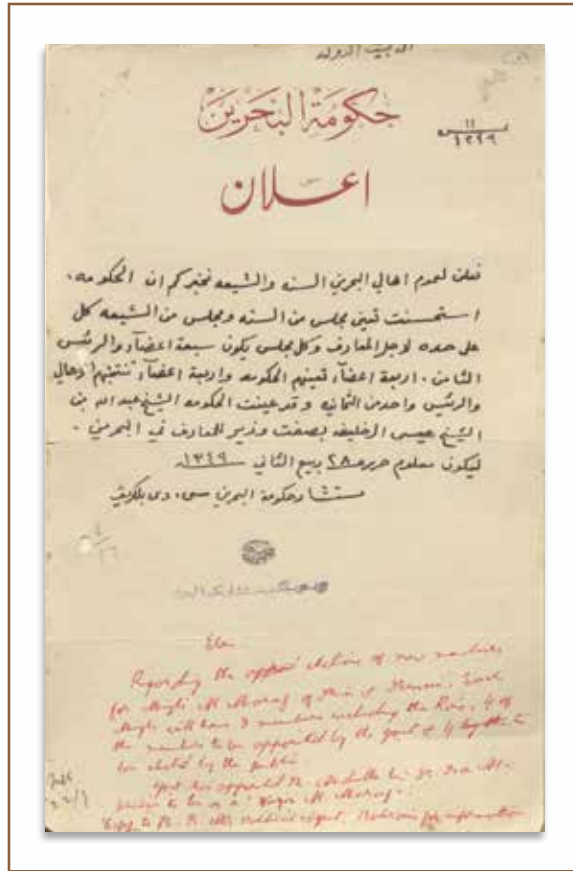 حكومة البحرين
١١
١٣٤٩
اعلان
نعلن لعموم اهالي البحرين السنه والشيعه نخبركم ان الحكومه
استحسنت تبني مجلس من السنه ومجلس من الشيعه كل
على حده لاجل المعارف وكل مجلس يكون سبعة اعضآء والرئيس
الثامن. اربعة اعضآء تعينهم الحكومه واربعة اعضآء تنتخبهم الاهالي
والرئيس واحد من الثمانيه وقد عينت الحكومه الشيخ عبد الله بن
الشيخ عيسى الخليفه بصفت وزير للمعارف في البحرين.
ليكون معلوم حرر في ٢٨ ربيع الثاني ١٣٤٩
مستشار حكومة البحرين سى، دى بلگريف
Elan
Regarding the election of new members
for Majli Al Maraf of Shia & Sunni. Each
Majli will have 8 members including the Rais, 4 of
the members to be appointed by the govt & 4 to
be elected by the public.
Govt has appointed Sh. Abdulla bin Sh. Isa Al-
to be as a Al Maraf.
Copy to Political Agent, Bahrain for information